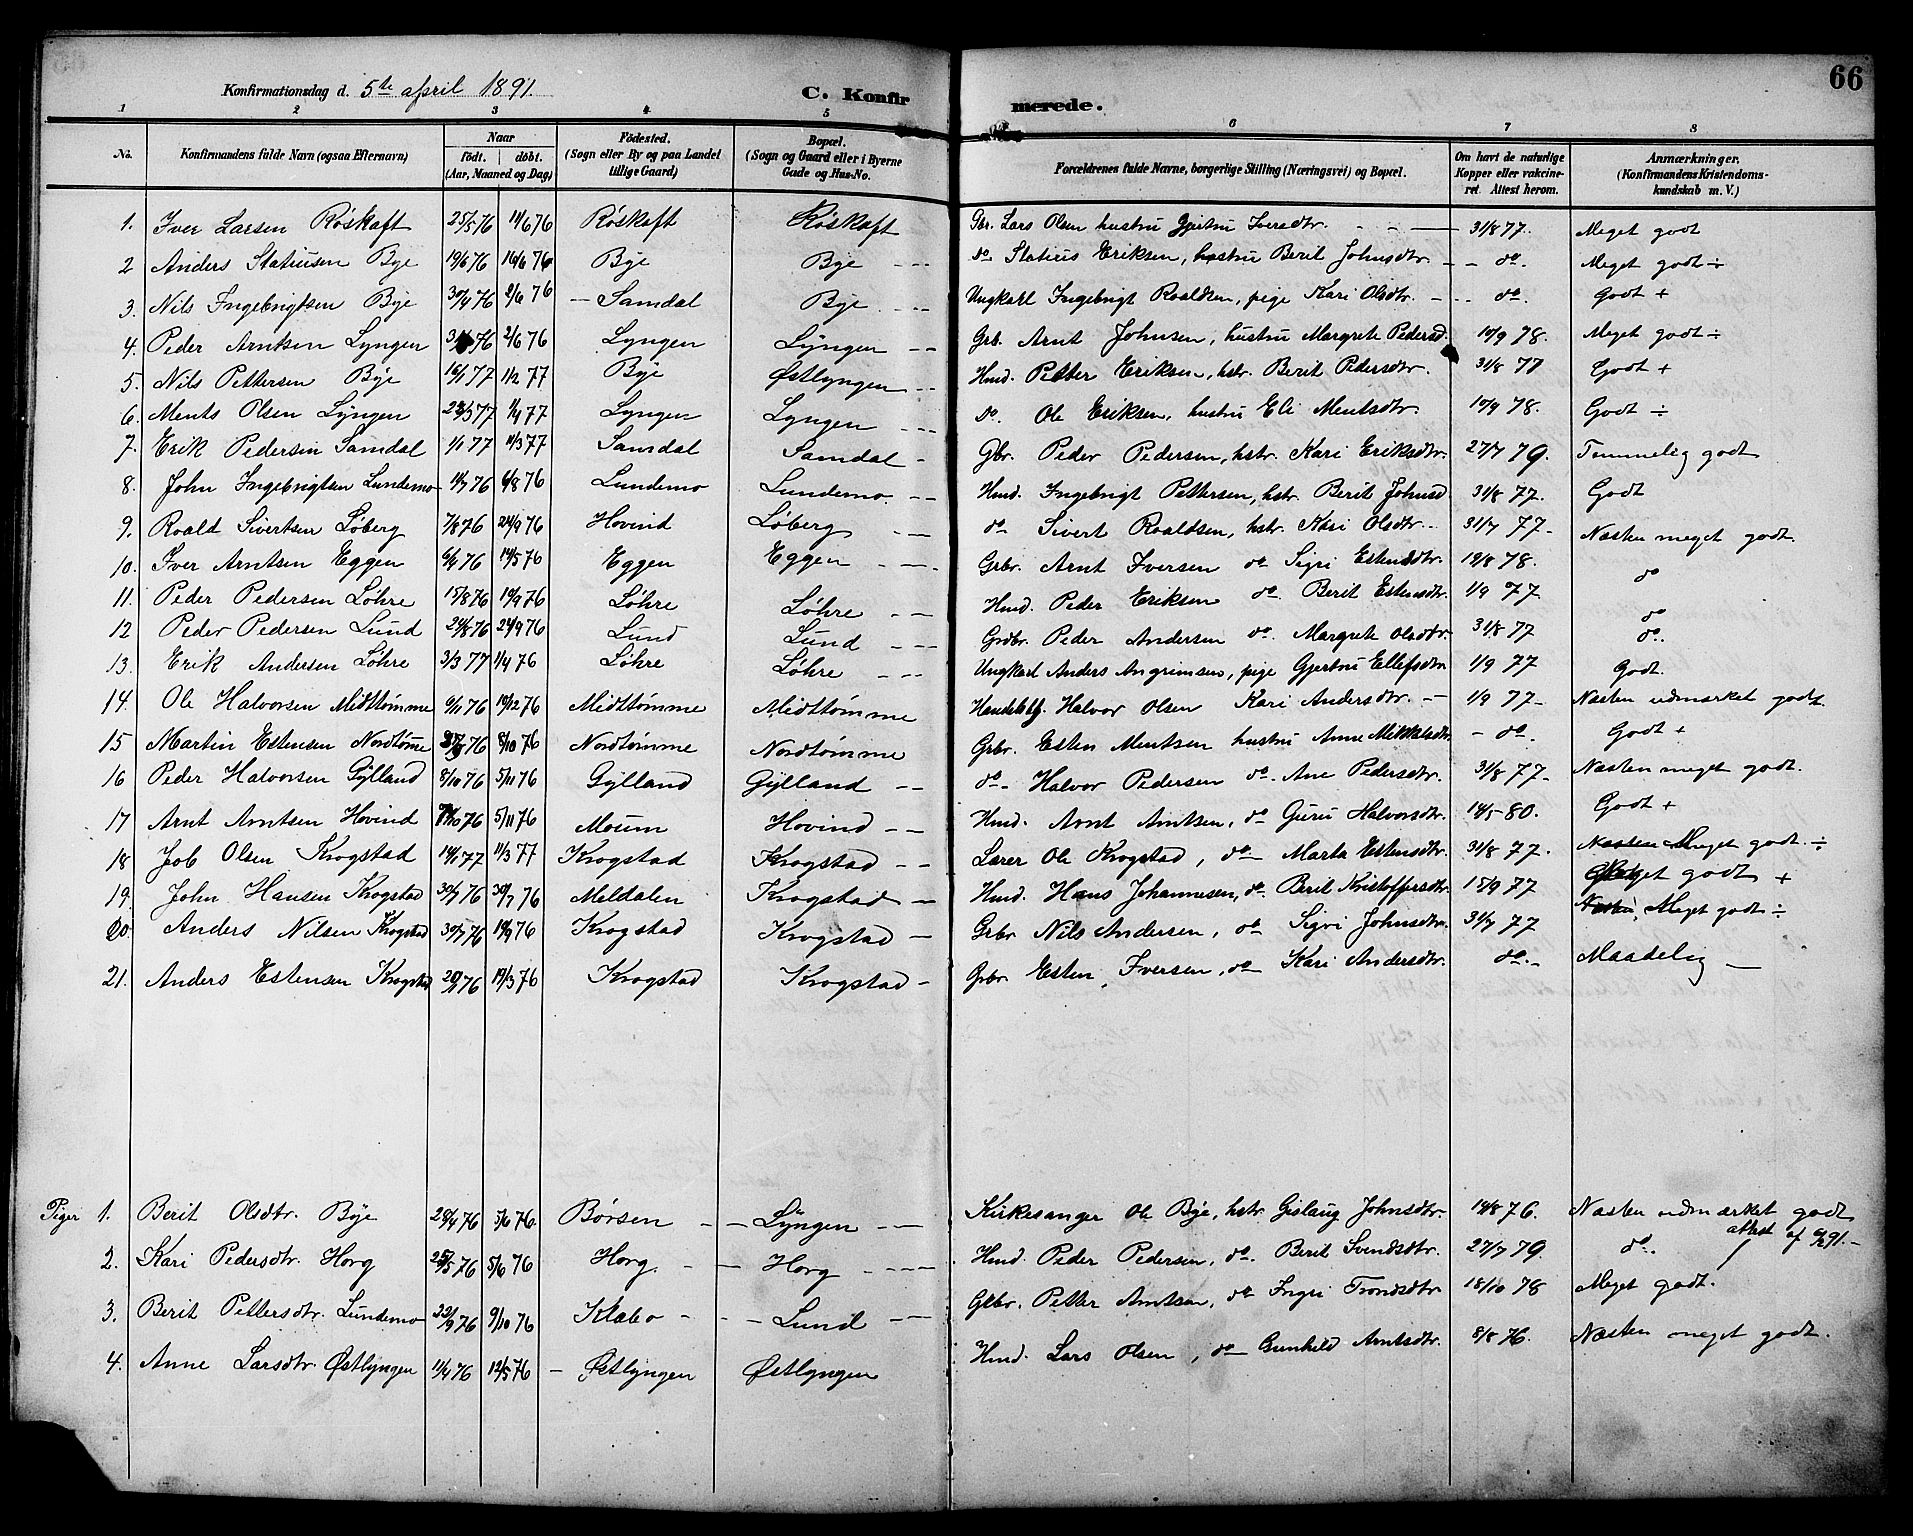 66
Konfirmationsdag d. 5te april 1891.
C. Konfirmerede.
1 2 3 4 5 6 7 8
No. Konfirmandens fulde Navn (ogsaa Efternavn) Naar født. døbt. (Aar, Maaned og Dag) Födested. (Sogn eller By og paa Landet tillige Gaard) Bopæl. (Sogn og Gaard eller i Byerne Gade og Hus-No. Forældrenes fulde Navne, borgerlige Stilling (Næringsvei) og Bopæl. Om havt de naturlige Kopper eller vakcineret. Attest herom. Anmærkninger. (Konfirmandens Kristendomskundskab m. V.)
1. Iver Larsen Röskaft 25/5 76 11/6 76 Röskaft Röskaft Gbr. Lars Olsen hustru Gjertru Iversdtr. - - - 31/8 77. Meget godt
2 Anders Statiusen Bye 19/6 76 16/6 76 Bye Bye - - - do Statius Eriksen, hustru Berit Johnsdtr. - - do. Meget godt ÷
3. Nils Ingebrigtsen Bye 30/4 76 2/6 76 - Samdal Bye - - - Ungkarl Ingebrigt Roaldsen, pige Kari Olsdtr. - - - do. Godt +
4. Peder Arntsen Lyngen 76 2/6 76 Lyngen Lyngen - - Grb. Arnt Johnsen, hustru Margrete Pedersd. 10/9 78. Meget godt ÷
5. Nils Pettersen Bye 16/1 77 1/2 77 Bye Østlyngen - - Hmd. Petter Eriksen, hstr. Berit Pedersdtr. 31/8 77 Godt +
6. Ments Olsen Lyngen 23/3 77 1/4 77 Lyngen Lyngen - - - do. Ole Eriksen, hustru Eli Mentsdtr. 10/9 78. Godt ÷
7. Erik Pedersen Samdal 1/1 77 11/3 77 Samdal Samdal - Gbr. Peder Pedersen, hstr. Kari Eriksdtr. 27/7 79. Temmelig godt
8. John Ingebrigtsen Lundemo 11/7 76 6/8 76 Lundemo Lundemo - - Hmd. Ingebrigt Pettersen, hst. Berit Johnsd 31/8 77. Godt
9. Roald Sivertsen Løberg 7/8 76 24/9 76 Hovind Løberg - - do Sivert Roaldsen, hstr. Kari Olsdtr. - - 31/7 77 - Næsten meget godt
10. Iver Arntsen Eggen 6/4 76 14/5 76 Eggen Eggen - - - Grbr. Arnt Iversen do Sigri Estensdtr. 19/8 78. do
11. Peder Pedersen Løhre 15/8 76 10/9 76 Løhre Løhre - - Hmd. Peder Eriksen do. Berit Estensdtr. 1/9 77 do
12 Peder Pedersen Lund 24/8 76 24/9 76 Lund Lund - - Grdbr. Peder Andersen do. Margrete Olsdtr. 31/8 77 do.
13. Erik Andersen Løhre 3/3 77 1/4 76 Løhre Løhre - - - Ungkarl Anders Angrimsen, pige Gjertru Ellefsdtr 1/9 77 Godt.
14. Ole Halvorsen Midttømme 9/11 76 19/12 76 Midttømme Midttømme Halvor Olsen Kari Andersdtr. - 1/9 77. - Næsten udmærket godt
15 Martin Estensen Nordtømme 76 8/10 76 Nordtømme Nordtømme Grbr. Esten Mentsen hustru Anne Mikkelsdtr. - do. Godt +
16 Peder Halvorsen Gylland 8/10 76 5/11 76 Gylland Gylland - - do - Halvor Pedersen do. Ane Pedersdtr. 31/8 77 - Næsten meget godt.
17 Arnt Arntsen Hovind 76 5/11 76 Moum Hovind - - Hmd. Arnt Arntsen, do Guru Halvorsdtr. 14/5 - 80. Godt +
18 Job Olsen Krogstad 14/1 77 11/3 77 Krogstad Krogstad - - Lærer Ole Krogstad, do Marta Estensdtr. 31/8 77. Næsten Meget godt ÷
19. John Hansen Krogstad 30/4 76 30/7 76 Meldalen Krogstad - Hmd. Hans Johannesen, do. Berit Kristoffersdtr. 15/9 77 Meget godt +
20. Anders Nilsen Krogstad 30/7 76 19/9 76 Krogstad Krogstad - Grbr Nils Andersen, do Sigri Johnsdtr. 31/7 77 Næsten, Meget godt ÷
21. Anders Estensen Krogstad 20/1 76 19/3 76 Krogstad Krogstad - Grbr. Esten Iversen, do Kari Andersdtr. do. - Maadelig -
Piger 1. Berit Olsdtr. Bye 28/4 76 5/6 76. Børsen - - Lyngen - - Kirkesanger Ole Bye, hstr. Gislaug Johnsdtr. 19/8 76. Næsten udmærket godt
2. Kari Pedersdtr. Horg 25/5 76 5/6 76 Horg. - - Horg - - - - Hmd. Peder Pedersen, do. Berit Svendsdtr. 27/7 79. do. attest af 91. -
3. Berit Pettersdtr. Lundemo 22/9 76 9/10 76 Klæbo - - - Lund - - Glbr. Petter Arntsen, do Ingri Trondsdtr 18/10 78 Meget godt.
4. Anne Larsdtr. Østlyngen 11/4 76 14/5 76 - Østlyngen Østlyngen Hmd. Lars Olsen, do Gunhild Arntsdtr. 8/8 76. Næsten meget godt.